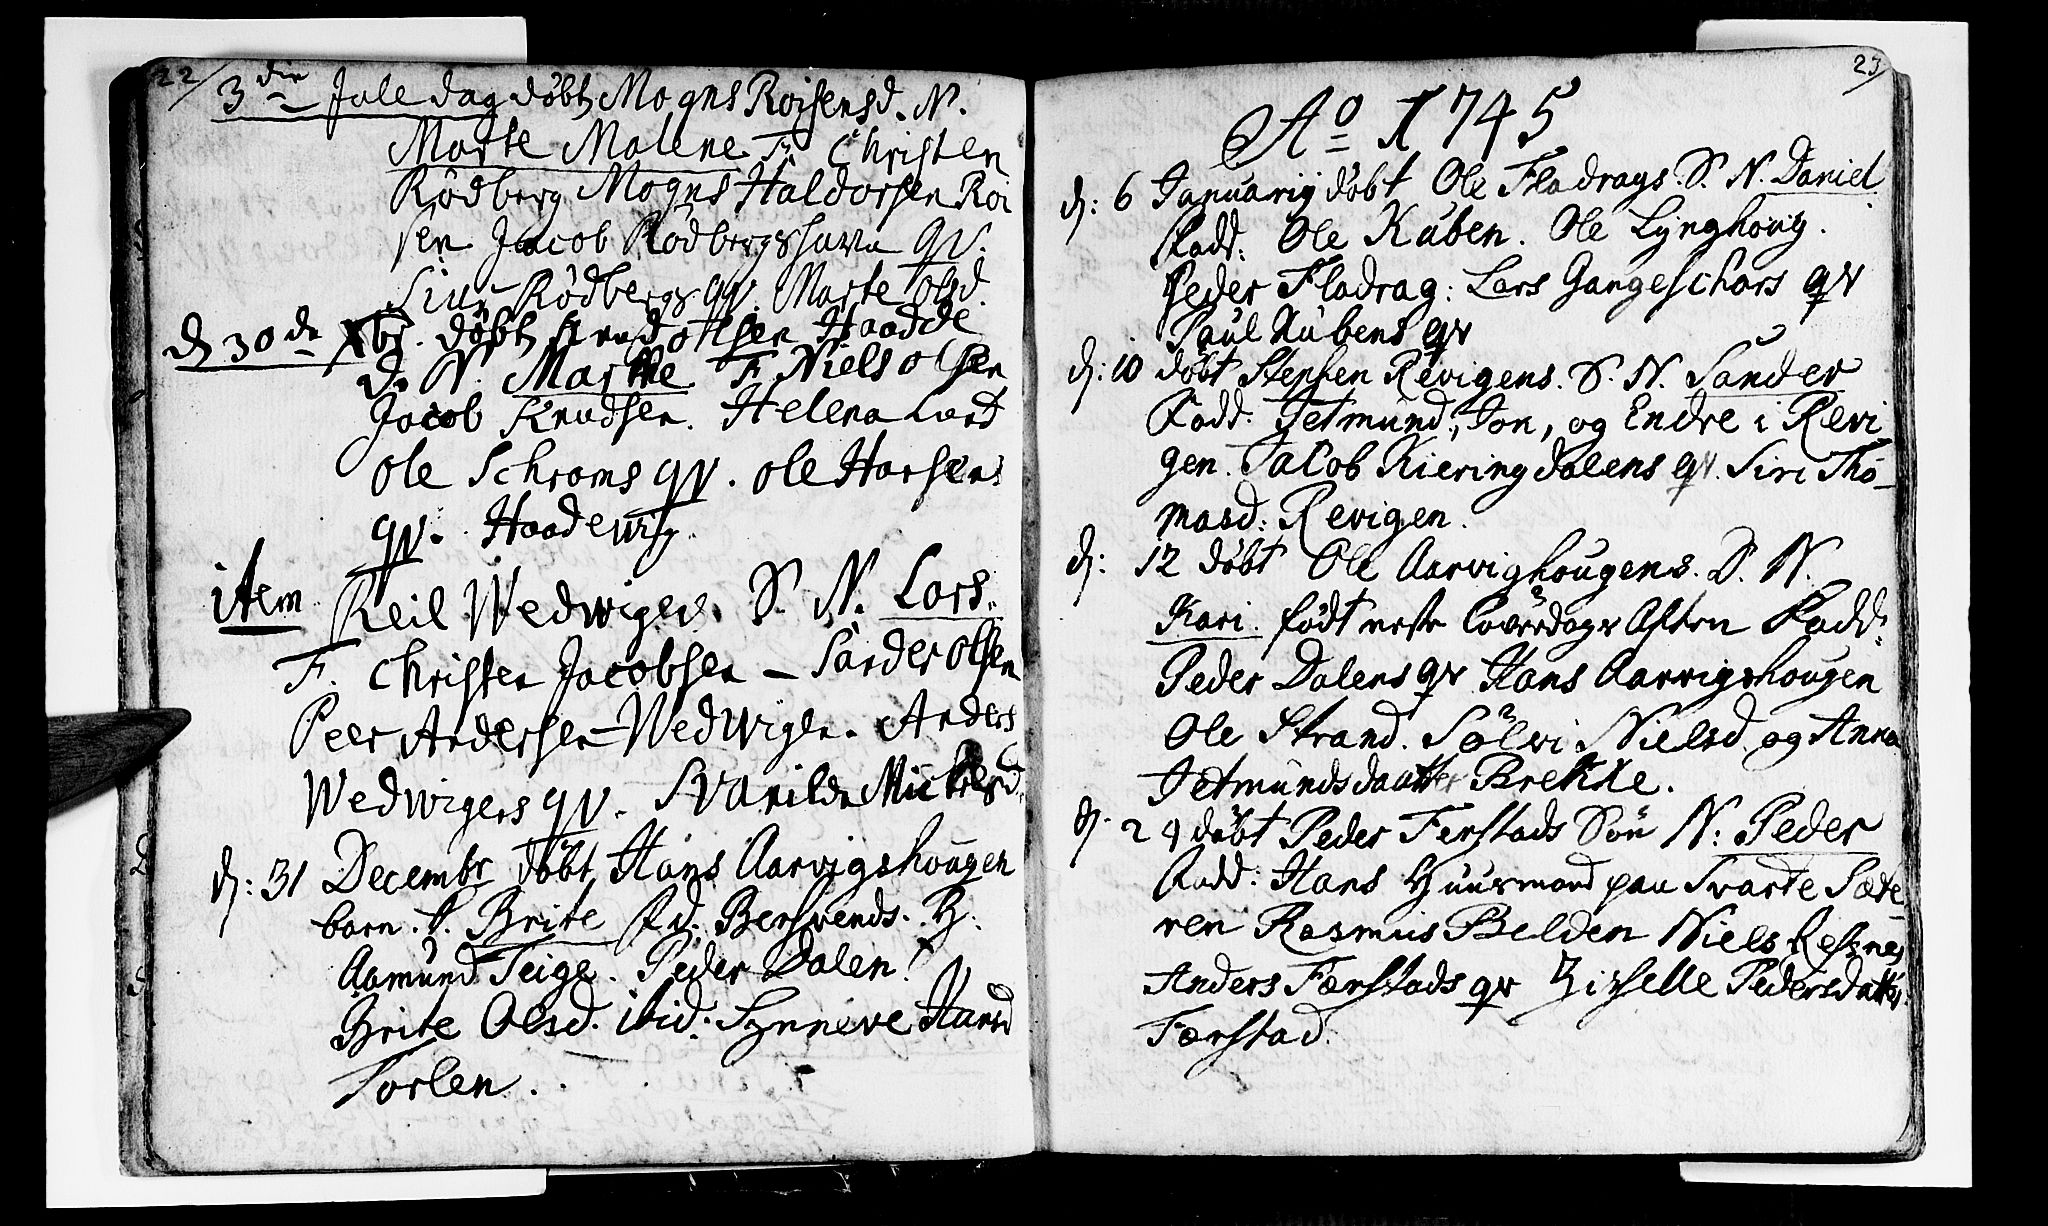 22
3die Jule dag döbt Mogns Roisens d. N.
Marte Malene F. Christen
Rödberg Mogns Haldorsen Roi
sen Jacob Rödbergshavn qv.
Siur Rödbergs qv. Marte Olsd.
d 30de Xbr. döbt Knud Olsen Haadde
d. N. Marthe F. Niels Olsen
Jacob Knudsen. Helena
Ole Schrams qv. Ole Hansens
qv. Haadewig.
item Keil Wedwigen. S. N. Lars.
F. Christen Jacobsen – Sander Olsen
Peer Andersen – Wedwigen. Anders
Wedwigens qv. Svanilde Mickelsd.
d: 31 Decembr döbt Hans Aarvigshougen
barn. N. Brite Fd. Bersvends. H.
Aamund Teige. Peder Dalen.
Brite Olsd. ibid. Synneve Hansd
Torlen.
23
Ao 1745
d: 6 Januarij döbt Ole Fladrags. S. N. Daniel
Fadd: Ole Kuben. Ole Lynghoug.
Peder Fladrag: Lars Gangeschars qv
Paul Kubens qv
d: 10 döbt Stephen Revigens. S. N. Sander
Fadd. Jetmund, Jon, og Endre i Revi
gen. Jacob Kieringdalens qv. Siri Tho-
masd: Revigen.
d: 12 döbt Ole Aarvighougens. D. N.
Kari. födt neste Löverdags Aften Fadd:
Peder Dalens qv Hans Aarvigshougen
Ole Strand. Sölvi Nielsd. og Anna
Jetmundsdaatter Brekke.
d. 24 döbt Peder Ferstads Sön N: Peder
Fadd: Hans Huusmand paa Svarte Sæte-
ren Rasmus Belden Niels Refsnes
Anders Færstads qv Zizselle Pedersdatter
Færstad.